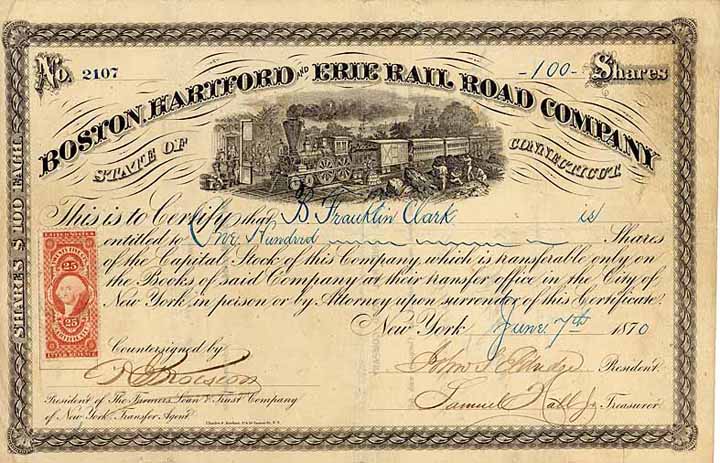 No. 2107
-100- Shares
BOSTON, HARTFORD AND ERIE RAIL ROAD COMPANY
STATE OF CONNECTICUT.
SHARES $100 EACH
This is to Certify that B Franklin Clark is
entitled to One Hundred Shares
of the Capital Stock of this Company, which is transferable only on
the Books of said Company at their transfer office in the City of
New York, in person or by Attorney upon surrender of this Certificate.
New York June 7th 1870
UNITED STATES
25
25
CERTIFICATE
Countersigned by
President of The Farmers' Loan & Trust Company
of New York, Transfer Agent.
John S. Eldridge President.
Samuel Hall Jr Treasurer.